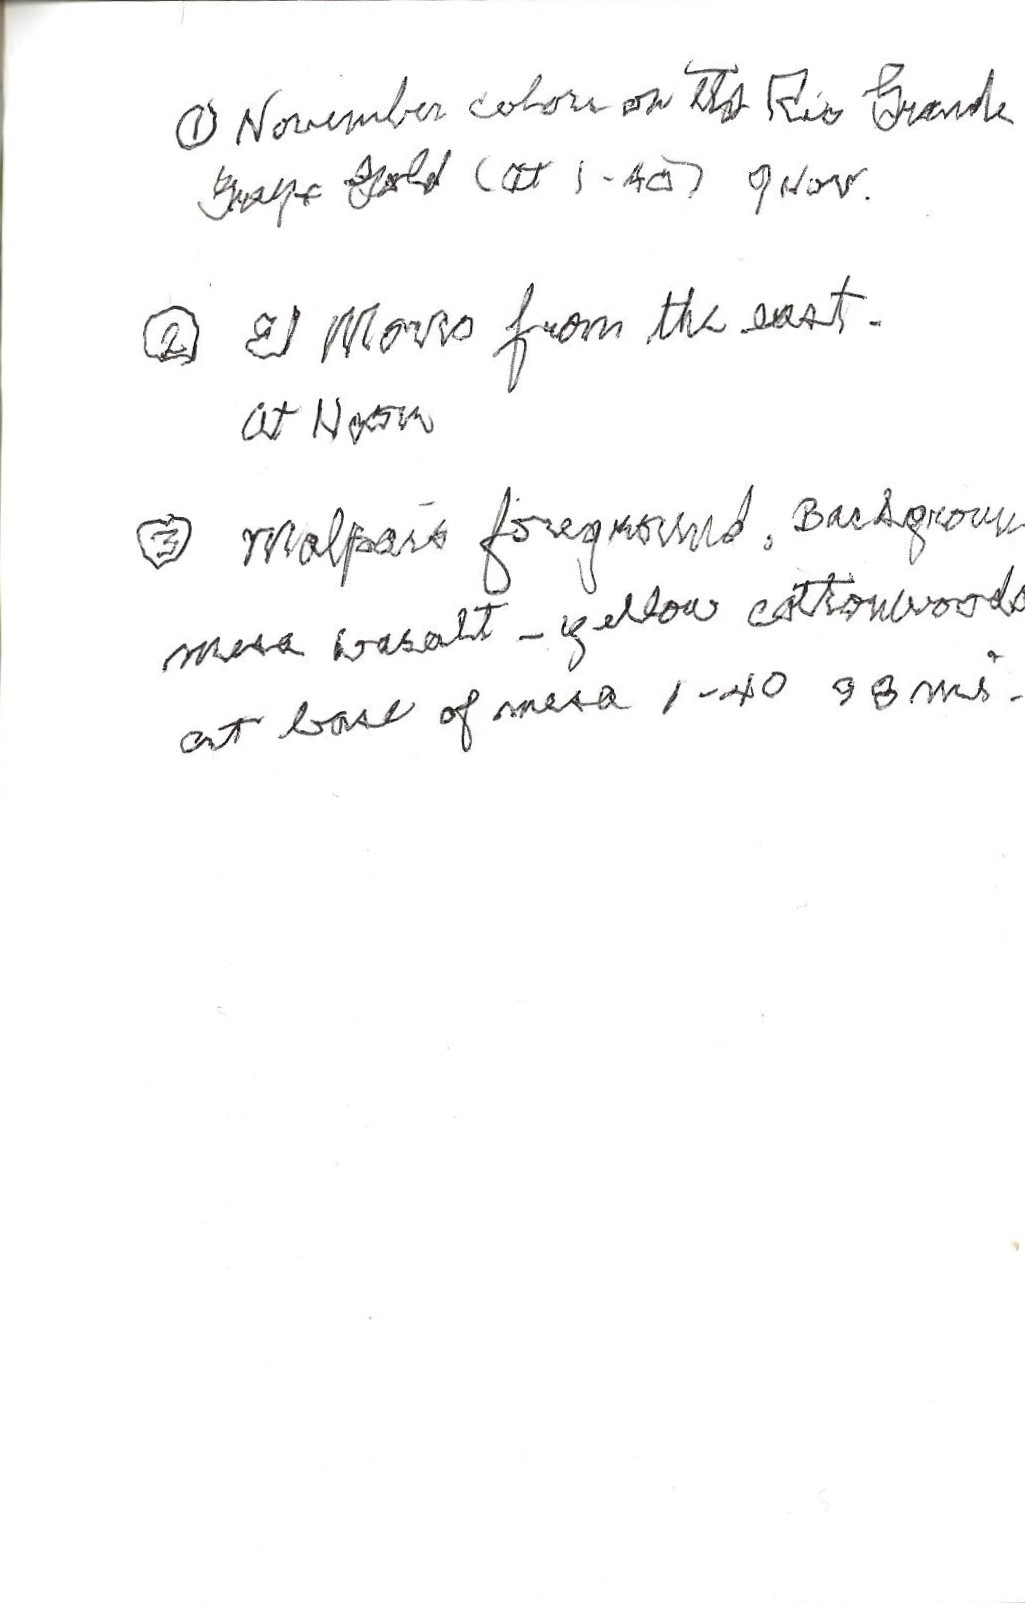 ① November colors on the Rio Grande
Gray & Gold (at I-40) 9 Nov.
② El Morro from the east.
at Noon
③ Malpais foreground, Backgroun
mesa basalt - yellow cottonwoods
at base of mesa I-40 98 mi.